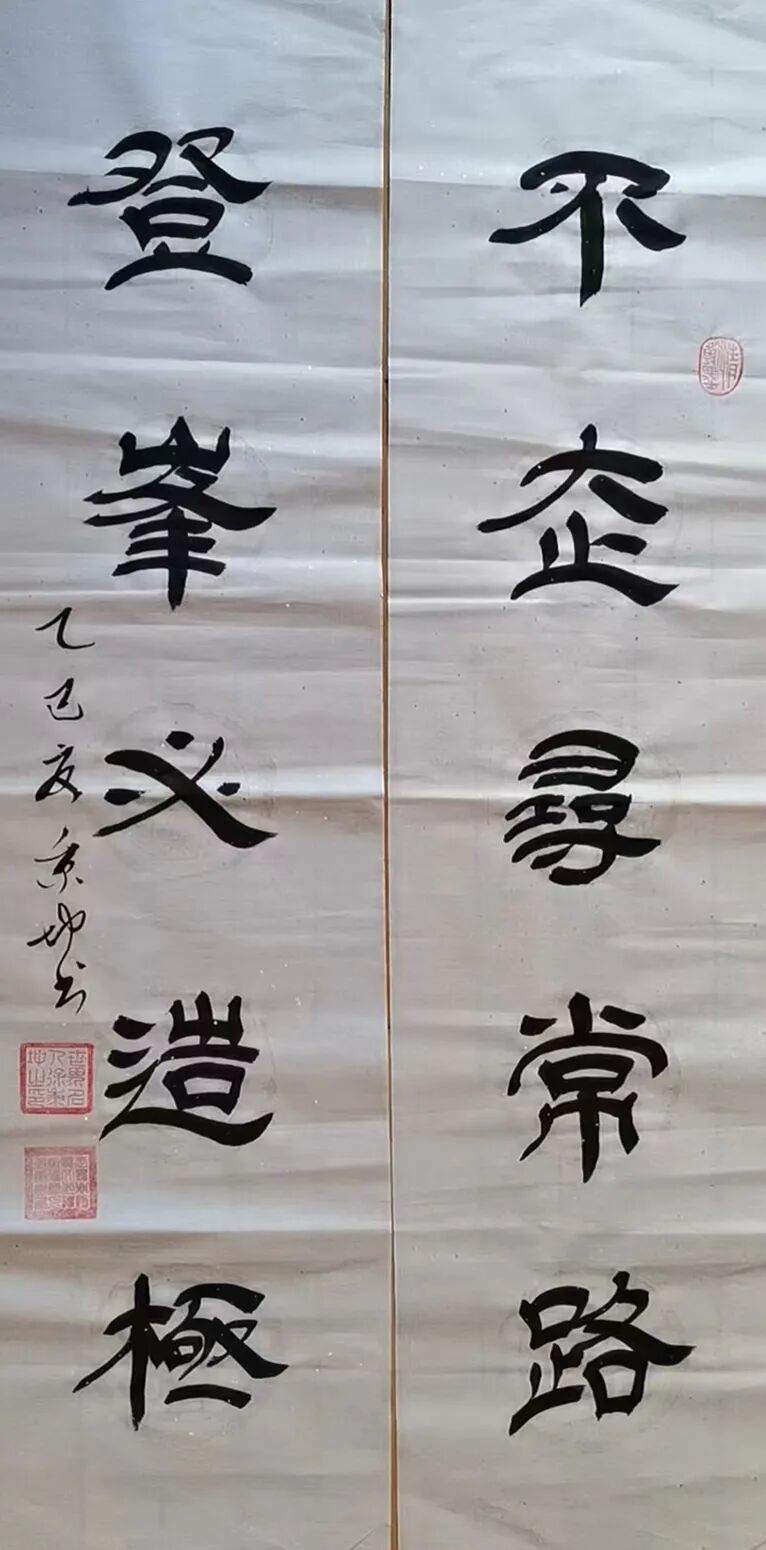 不走尋常路
登峯必造極
乙巳夏秉坤书